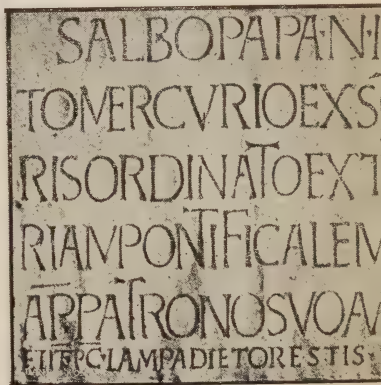 SALBOPAPA·N·I
TOMERCVRIOEXS
RISORDINATOEXT
RIAMPONTIFICALEM
APPATRONOSVOA
ETIIFPC·LAMPADIETORESTIS·